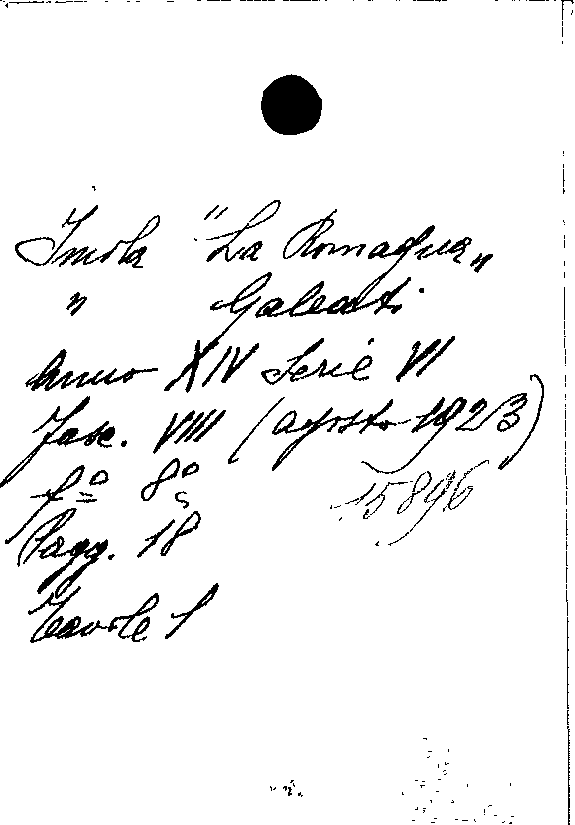 Imola "La Romagna„
" Galeati
Anno XIV Serie VI
Fasc. VIII (agosto 1923)
fº 8º
15896
Pagg. 18
Tavole 1